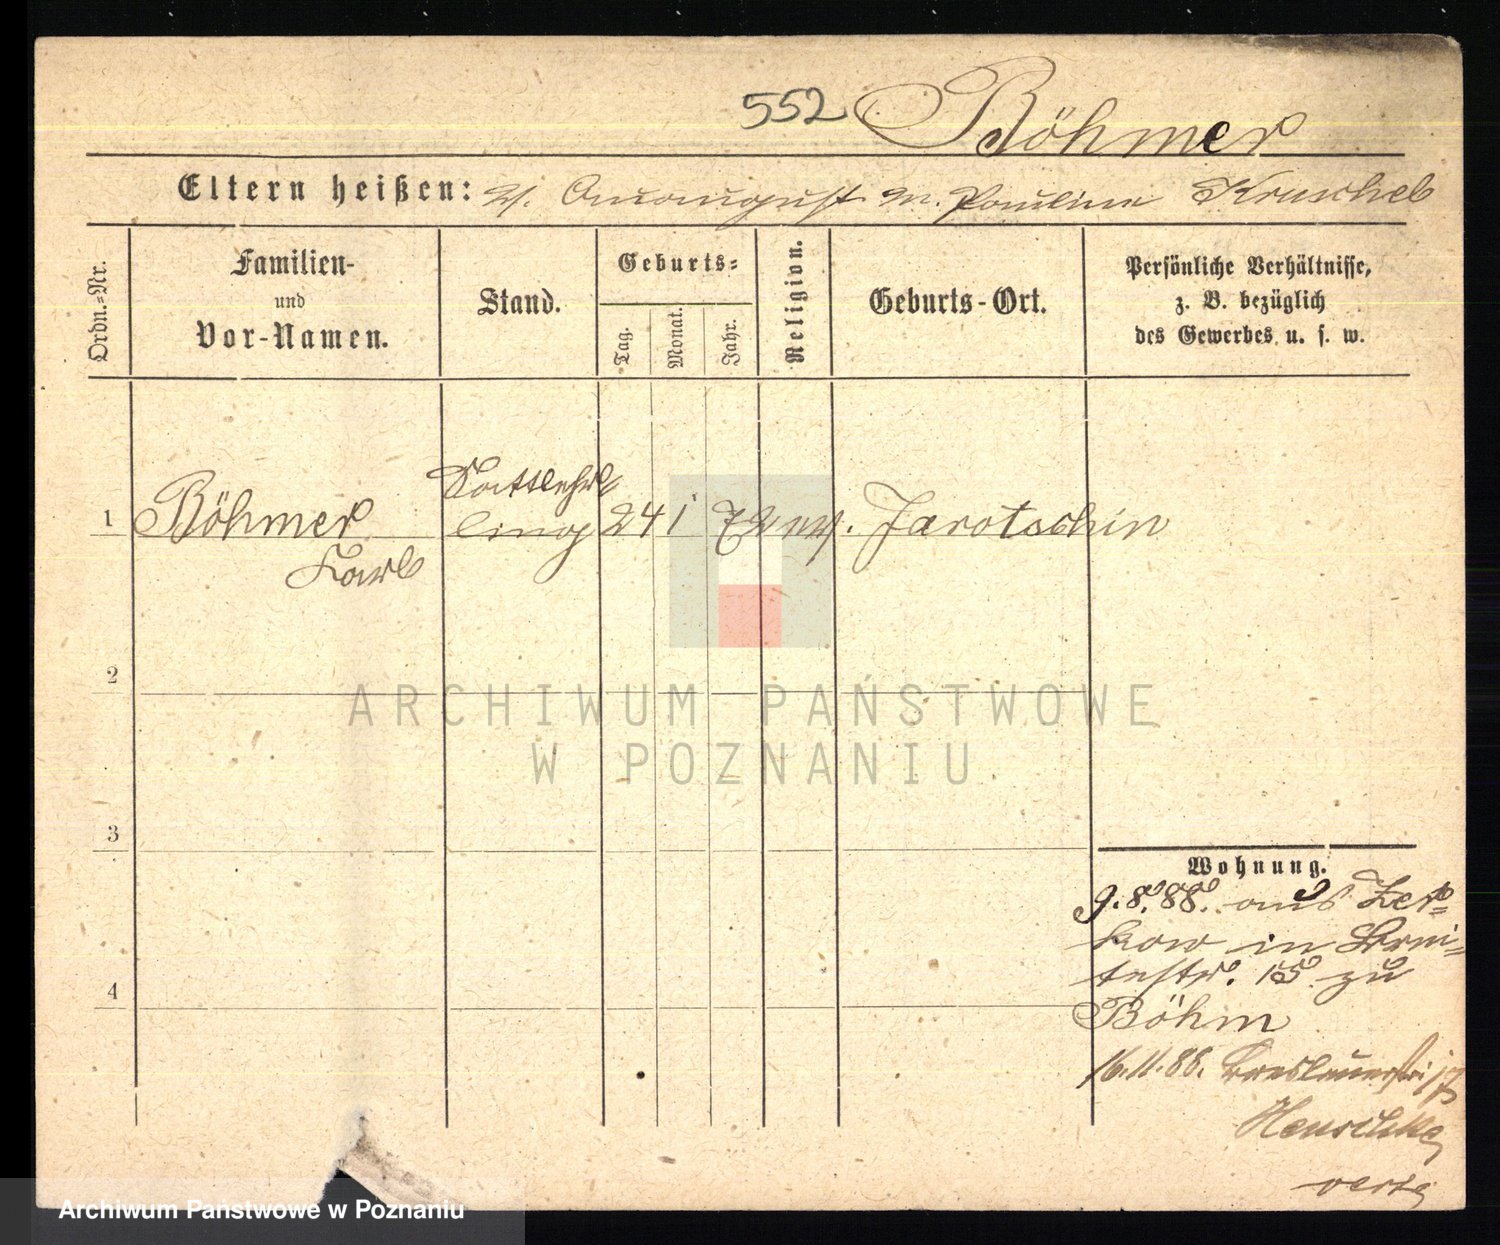 552 Böhmer
Eltern heißen: V. August M. Pauline Kruschel
Ordn.-Nr.
Familien-
und
Vor-Namen.
Stand.
Geburts-
Tag.
Monat.
Jahr.
Religion.
Geburts-Ort.
Persönliche Verhältnisse,
z. B. bezüglich
des Gewerbes u. s. w.
1 Böhmer
Karl
Sattlerlehr-
ling
24 1 72 ev. Jarotschin
2
3
4
Wohnung.
9.8.88. aus Zer-
kow in Brei-
testr. 15 zu
Böhm
16.11.88. Breslauerstr. 17
Henschke
verte
ARCHIWUM PAŃSTWOWE
W POZNANIU
Archiwum Państwowe w Poznaniu